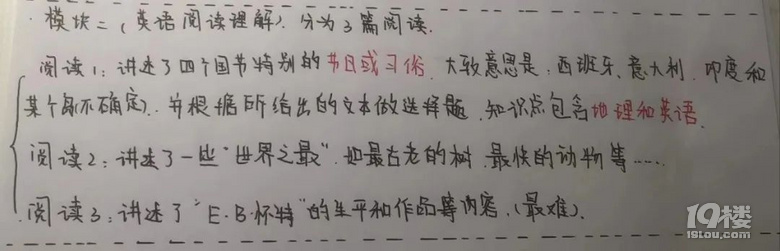 模块二(英语阅读理解). 分为3篇阅读.
阅读1:讲述了四个国节特别的节日或习俗. 大致意思是:西班牙、意大利、印度和
某个岛(不确定). 并根据所给出的文本做选择题. 知识点包含地理和英语.
阅读2:讲述了一些"世界之最". 如最古老的树. 最快的动物等……
阅读3:讲述了"E.B.怀特"的生平和作品等内容.(最难).
19楼
19lou.com